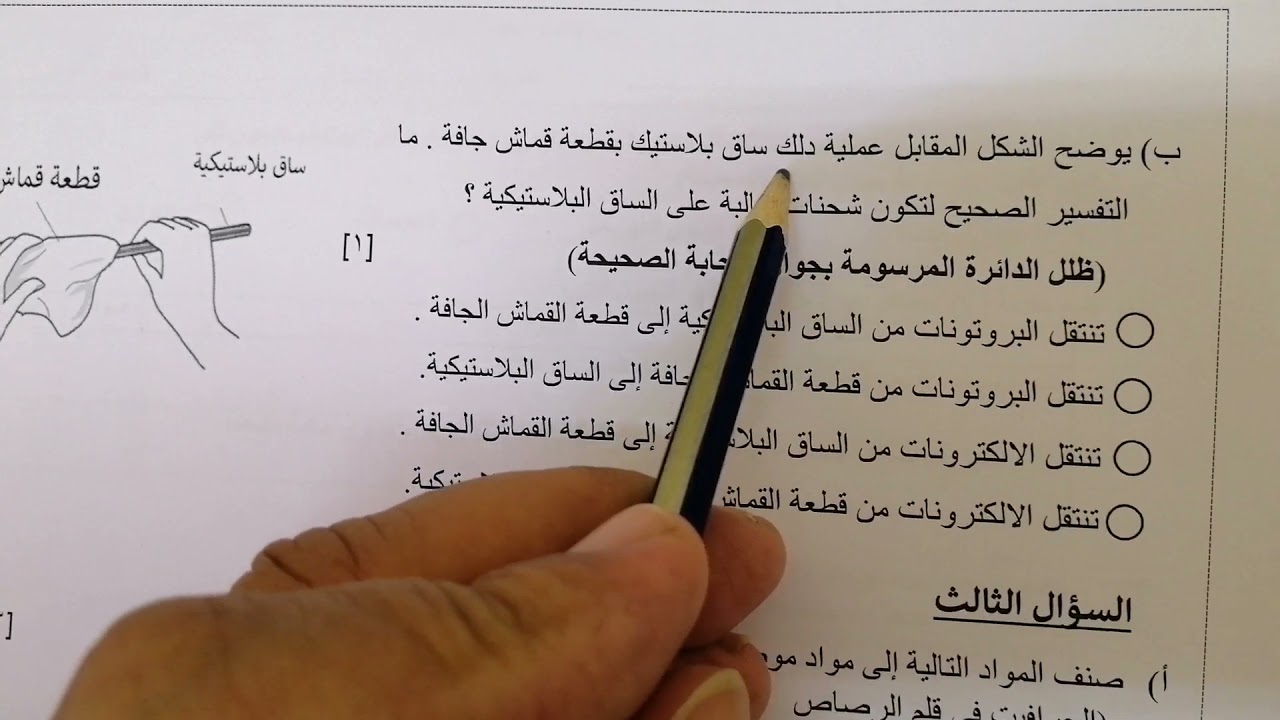 ب) يوضح الشكل المقابل عملية دلك ساق بلاستيك بقطعة قماش جافة . ما
التفسير الصحيح لتكون شحنات على الساق البلاستيكية ؟
[١]
(ظلل الدائرة المرسومة الصحيحة)
تنتقل البروتونات من الساق إلى قطعة القماش الجافة .
تنتقل البروتونات من قطعة إلى الساق البلاستيكية.
تنتقل الالكترونات من الساق إلى قطعة القماش الجافة .
تنتقل الالكترونات من قطعة القماش
ساق بلاستيكية
قطعة قماش
السؤال الثالث
أ) صنف المواد التالية إلى مواد
في قلم الرصاص